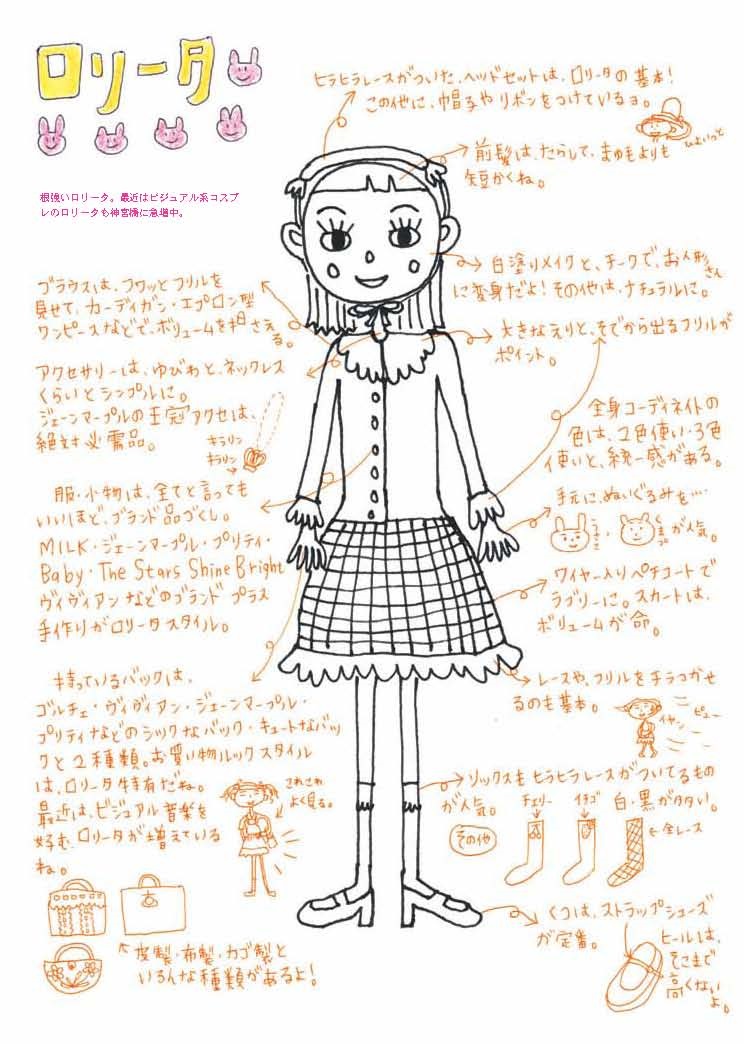 ロリータ
根強いロリータ。最近はビジュアル系コスプ
レのロリータも神宮橋に急増中。
ヒラヒラレースがついた、ヘッドセットは、ロリータの基本!
この他に、帽子やリボンをつけているヨ。
ひょいっと
前髪は、たらして、まゆもよりも
短かくね。
白塗りメイクと、チークで、お人形さん
に変身だよ!その他は、ナチュラルに。
大きなえりと、そでから出るフリルが
ポイント。
ブラウスは、フワッとフリルを
見せて、カーディガン・エプロン型
ワンピースなどで、ボリュームを押さえ
る。
アクセサリーは、ゆびわと、ネックレス
くらいとシンプルに。
ジェーンマープルの王冠アクセは、
絶対必需品。
キラリン
キラリン
全身コーディネイトの
色は、2色使い・3色
使いと、統一感がある。
服・小物は、全てと言っても
いいほど、ブランド品づくし。
MILK・ジェーンマープル・プリティ・
Baby・The Stars Shine Bright
ヴィヴィアンなどのブランド プラス
手作りがロリータスタイル。
手元に、ぬいぐるみを…
うさこ・くまっこが人気。
ワイヤー入りペチコートで
ラブリーに。スカートは、
ボリュームが命。
持っているバックは、
ゴルチェ・ヴィヴィアン・ジェーンマープル・
プリティなどのシックなバック・キュートなバッ
クと2種類。お買い物ルックスタイル
は、ロリータ特有だね。
最近は、ビジュアル音楽を
好む、ロリータが増えている
ね。
これこれ
よく見る。
レースや、フリルをチラつかせ
るのも基本。
イヤン
ピュー
ソックスもヒラヒラレースがついてるもの
が人気。
その他
チェリー
イチゴ
白・黒がタタい。
←全レース
くつは、ストラップシューズ
が定番。
ヒールは、
そこまで
高くない
よ。
皮製・布製・カゴ製と
いろんな種類があるよ!